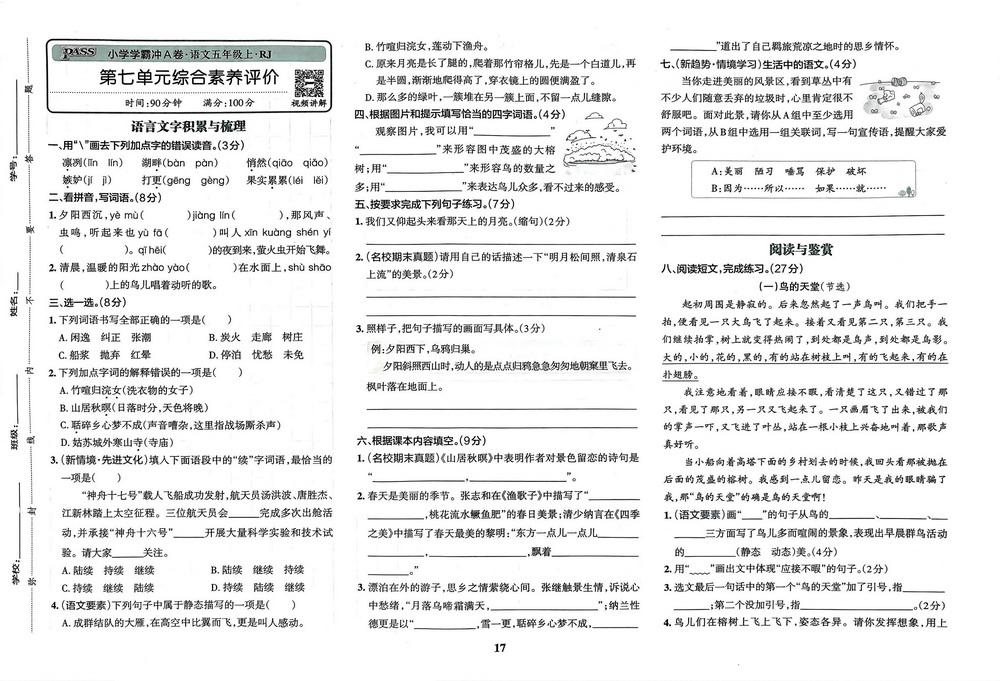 学校: 班级: 姓名: 学号:
弥 封 线 内 不 要 答 题
PASS 小学学霸冲A卷·语文五年级上·RJ
第七单元综合素养评价
时间:90分钟 满分:100分
视频讲解
语言文字积累与梳理
一、用“\”画去下列加点字的错误读音。(3分)
凛冽(lǐn lǐn) 湖畔(bàn pàn) 悄然(qiāo qiǎo)
嫉妒(jí jì) 打更(gēng gèng) 果实累累(léi lěi)
二、看拼音,写词语。(8分)
1.夕阳西沉,yè mù( )jiàng lín( ),那风声、
虫鸣,听起来也yù fā( )叫人xīn kuàng shén yí
( )。qī hēi( )的夜到来,萤火虫开始飞舞。
2.清晨,温暖的阳光zhào yào( )在水面上,shù shāo
( )上的鸟儿唱着动听的歌。
三、选一选。(8分)
1.下列词语书写全部正确的一项是( )
A.闲逸 纠正 张潮 B.炭火 走廊 树庄
C.船浆 抛弃 红晕 D.停泊 忧愁 未免
2.下列加点字词的解释错误的一项是( )
A.竹喧归浣女(洗衣物的女子)
B.山居秋暝(日落时分,天色将晚)
C.聒碎乡心梦不成(声音嘈杂,这里指战场厮杀声)
D.姑苏城外寒山寺(寺庙)
3.(新情境·先进文化)填人下面语段中的“续”字词语,最恰当的
一项是( )
“神舟十七号”载人飞船成功发射,航天员汤洪波、唐胜杰、
江新林踏上太空征程。三位航天员会______完成多次出舱活
动,并承接“神舟十六号”______开展大量科学实验和技术试
验。请大家______关注。
A.陆续 持续 继续 B.陆续 继续 持续
C.持续 继续 陆续 D.持续 陆续 继续
4.(语文要素)下列句子中属于静态描写的一项是( )
A.成群结队的大雁,在高空中比翼而飞,更是叫人感动。
B.竹喧归浣女,莲动下渔舟。
C.原来月亮是长了腿的,爬着那竹帘格儿,先是一个白道儿,再
是半圆,渐渐地爬得高了,穿衣镜上的圆便满盈了。
D.那么多的绿叶,一簇堆在另一簇上面,不留一点儿缝隙。
四、根据图片和提示填写恰当的四字词语。(4分)
观察图片,我可以用“____________”
“____________”来形容图中茂盛的大榕
树;用“____________”来形容鸟的数量之
多;用“____________”来表达鸟儿众多,看不过来的感受。
五、按要求完成下列句子练习。(7分)
1.我们又仰起头来看那天上的月亮。(缩句)(2分)
2.(名校期末真题)请用自己的话描述一下“明月松间照,清泉石
上流”的美景。(2分)
3.照样子,把句子描写的画面写具体。(3分)
例:夕阳西下,乌鸦归巢。
夕阳斜照西山时,动人的是点点归鸦急急匆匆地朝窠里飞去。
枫叶落在地面上。
六、根据课本内容填空。(9分)
1.(名校期末真题)《山居秋暝》中表明作者对景色留恋的诗句是
“____________,____________”。
2.春天是美丽的季节。张志和在《渔歌子》中描写了“________
________,桃花流水鳜鱼肥”的春日美景;清少纳言在《四季
之美》中描写了春天最美的黎明:“东方一点儿一点儿________
________,____________,飘着____________
________。”
3.漂泊在外的游子,思乡之情萦绕心间。张继触景生情,诉说心
中愁绪,“月落乌啼霜满天,____________”;纳兰性
德更是以“____________,雪一更,聒碎乡心梦不成,________
________”道出了自己羁旅荒凉之地时的思乡情怀。
七、(新趋势·情境学习)生活中的语文。(4分)
当你走进美丽的风景区,看到草丛中有
不少人们随意丢弃的垃圾时,心里肯定很不
舒服吧。面对此景,请你从A组中至少选用
两个词语,从B组中选用一组关联词,写一句宣传语,提醒大家爱
护环境。
A:美丽 陋习 唾骂 保护 破坏
B:因为……所以…… 如果……就……
阅读与鉴赏
八、阅读短文,完成练习。(27分)
(一)鸟的天堂(节选)
起初周围是静寂的。后来忽然起了一声鸟叫。我们把手一
拍,便看见一只大鸟飞了起来。接着又看见第二只,第三只。我
们继续拍掌,树上就变得热闹了,到处都是鸟声,到处都是鸟影。
大的,小的,花的,黑的,有的站在树枝上叫,有的飞起来,有的在
扑翅膀。
我注意地看着,眼睛应接不暇,看清楚了这只,又错过了那
只,看见了那只,另一只又飞起来了。一只画眉飞了出来,被我们
的掌声一吓,又飞进了叶丛,站在一根小枝上兴奋地叫着,那歌声
真好听。
当小船向着高塔下面的乡村划去的时候,我回头看那被抛在
后面的茂盛的榕树。我感到一点儿留恋。昨天是我的眼睛骗了
我,那“鸟的天堂”的确是鸟的天堂啊!
1.(语文要素)画“____”的句子从鸟的________、________、____
____三方面写了鸟儿多而喧闹的景象,表现出早晨群鸟活动
的________(静态 动态)美。(4分)
2.用“﹏﹏”画出文中体现“应接不暇”的句子。(2分)
3.选文最后一句话中的第一个“鸟的天堂”加了引号,指________
________;第二个没加引号,指________________。(2分)
4.鸟儿们在榕树上飞上飞下,姿态各异。请你发挥想象,用上
17